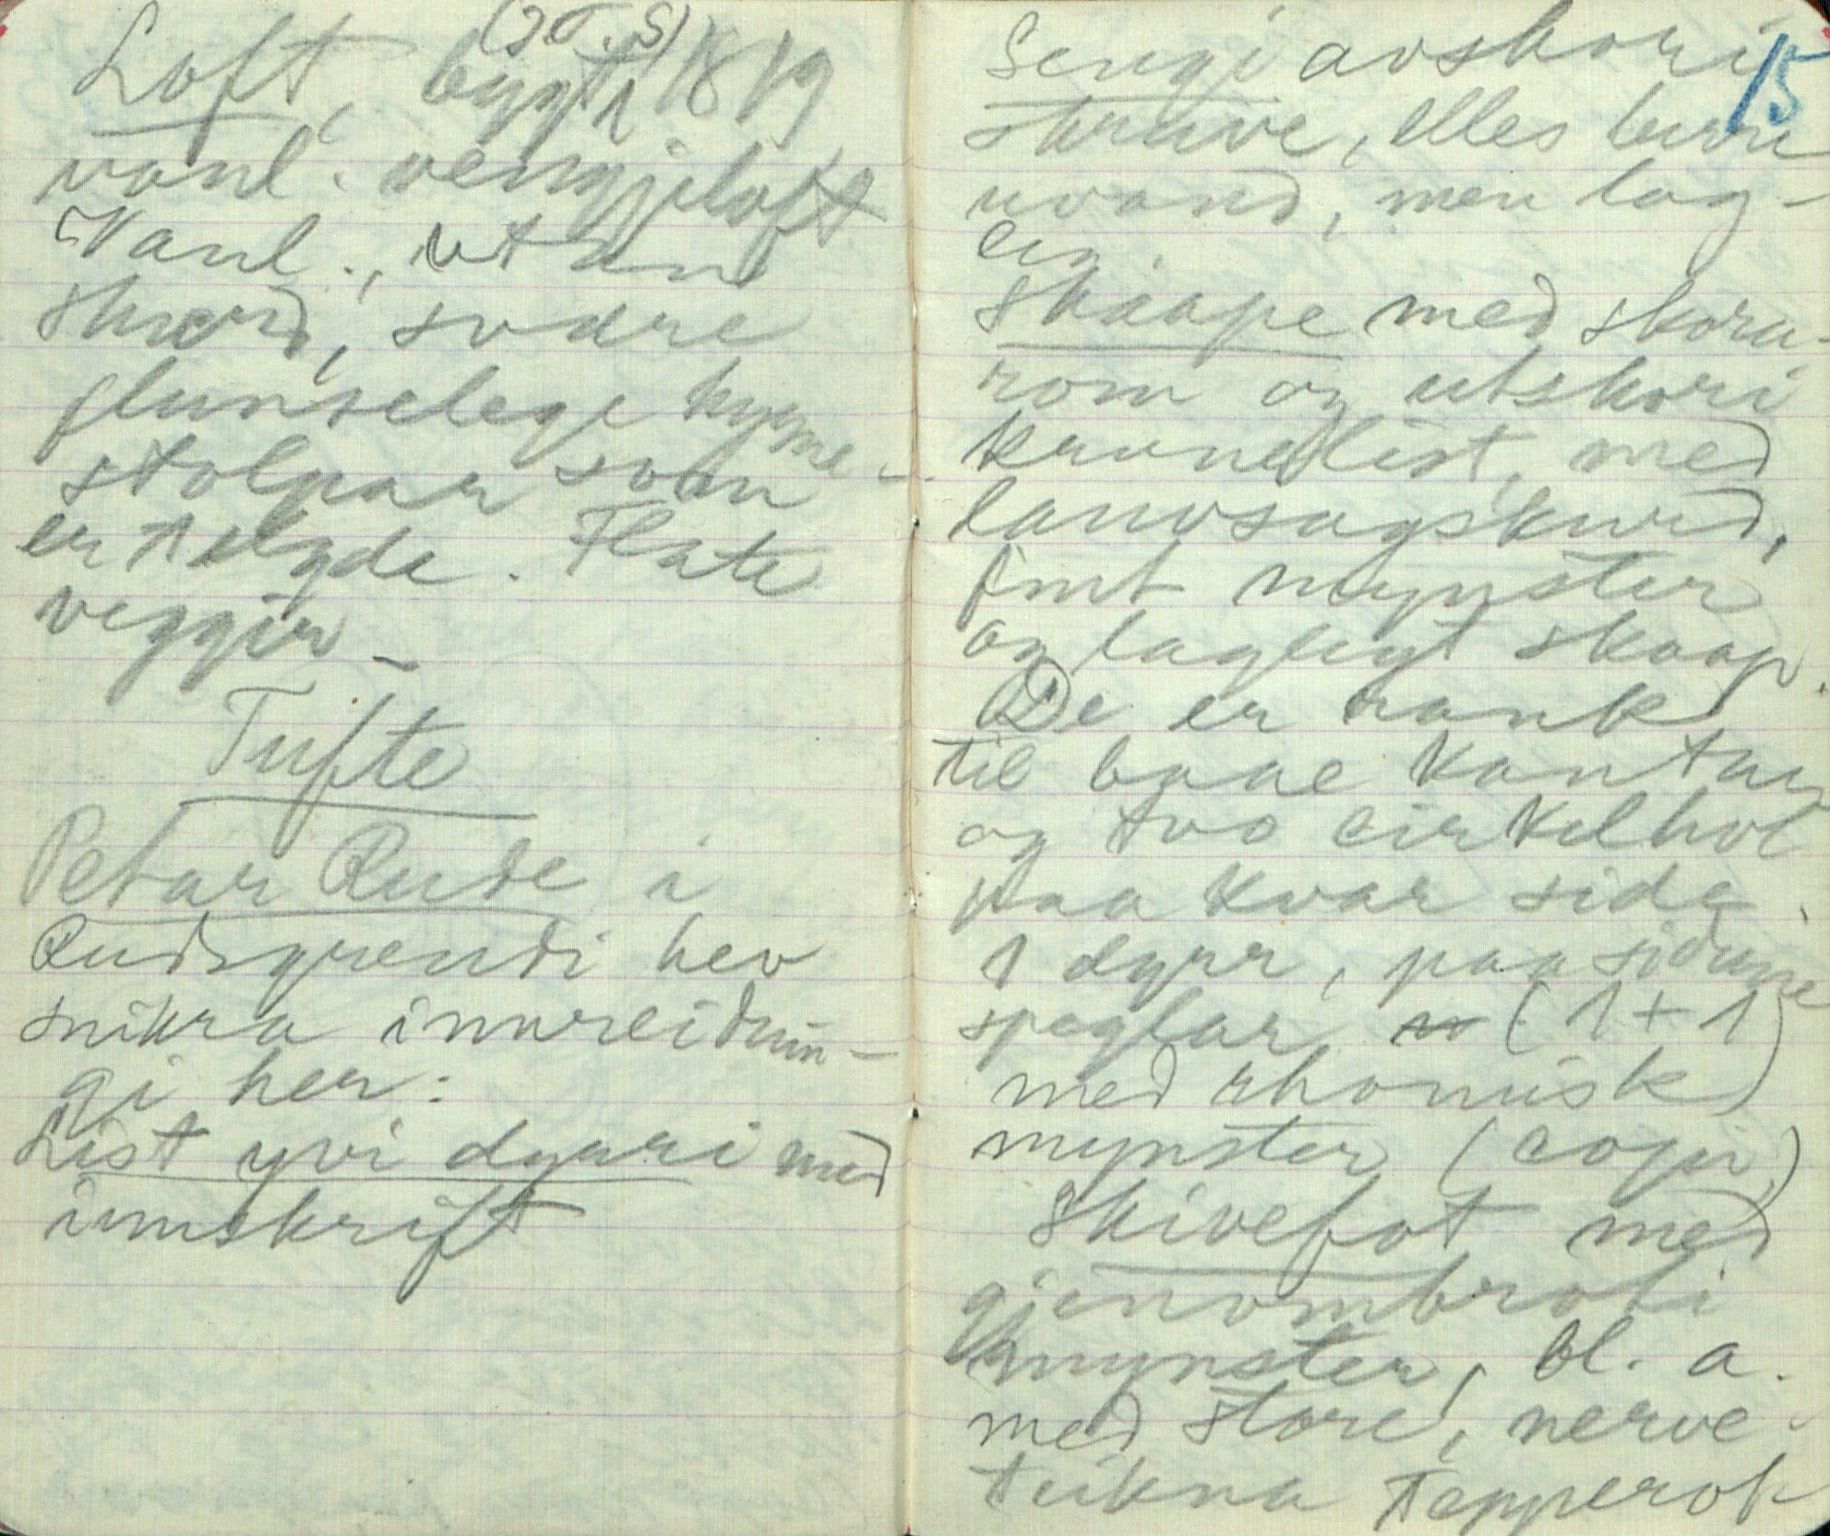 (J.T.S)
Loft, bygt i 1819
vanl. vengjeloft
Vanl., utan
skurd, svære
flunselege hyrne-
stolpar som
er telgde. Flate
veggir _
Tufte
Petar Rude i
Rudsgrendi hev
snikra innreidnin-
gi her:
List yvi dynri med
innskrift
15
Sengi avskori
skruve, elles
uvand, men lag-
leg.
Skaape med skora-
rom og utskori
krunelist, med
lauvsagskurd,
fint mynster
og laglegt skaap.
De er rank
til baae kantar
og tvo cirkelhol
paa kvar side.
1 dyrr, paa sidune
speglar (1+1)
med rhomisk
mynster (copi)
Skivefot med
gjenombroti
mynster, bl. a.
med store, nerve-
teikna